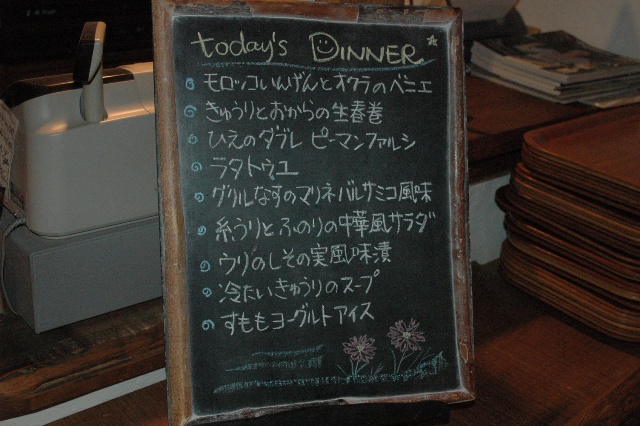 today's DINNER
モロッコいんげんとオクラのベニエ
きゅうりとおからの生春巻
ひえのタブレ ピーマンファルシ
ラタトゥユ
グリルなすのマリネバルサミコ風味
糸うりとふのりの中華風サラダ
ウリのしその実風味漬
冷たいきゅうりのスープ
すももヨーグルトアイス